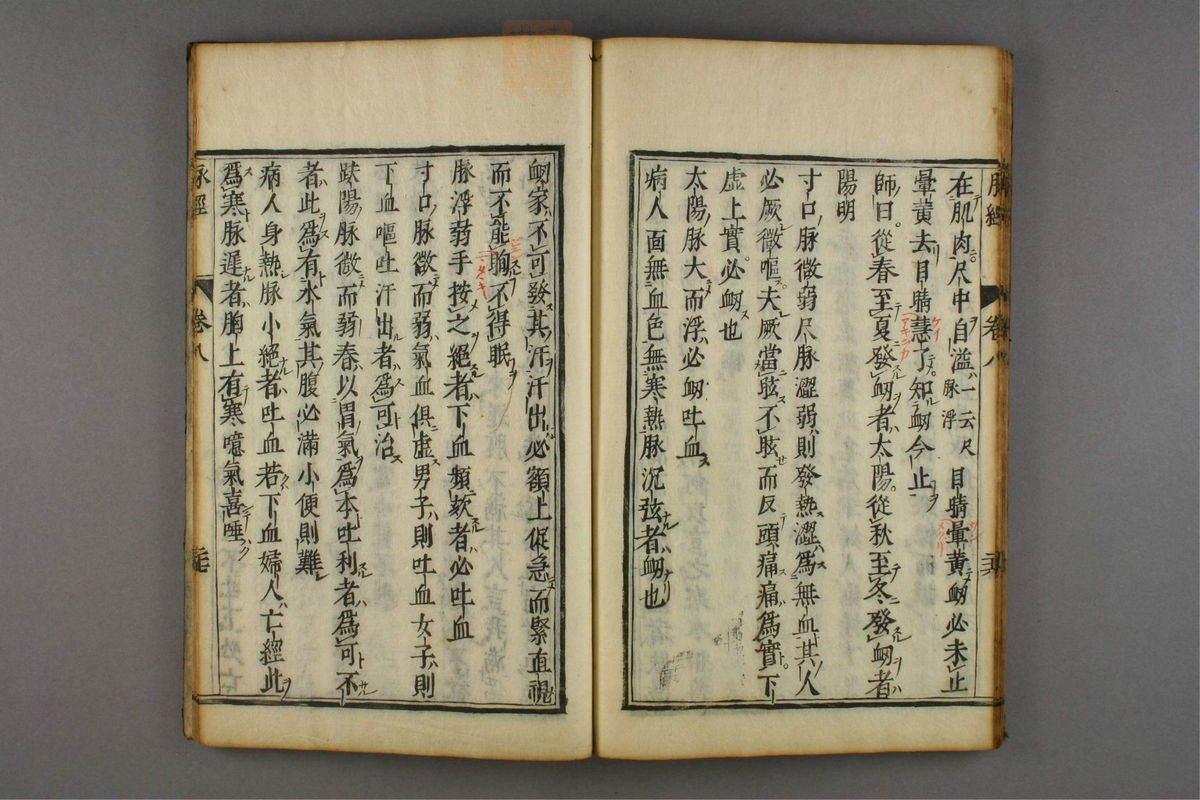 在肌肉尺中自溢一云尺脉浮目睛暈黃衂必未止
暈黃去目睛慧了知衂今止
師曰從春至夏發衂者太陽從秋至冬發衂者
陽明
寸口脉微弱尺脉澀弱則發熱澀爲無血其人
必厥微嘔夫厥當眩不眩而反頭痛痛爲實下
虛上實必衂也
太陽脉大而浮必衂吐血
病人面無血色無寒熱脉沉弦者衂也
脉經
卷八
衂家不可發其汗汗出必額上促急而緊直視
而不能眴不得眠
脉浮弱手按之絕者下血頻欬者必吐血
寸口脉微而弱氣血俱虛男子則吐血女子則
下血嘔吐汗出者爲可治
趺陽脉微而弱春以胃氣爲本吐利者爲可不
者此爲有水氣其腹必滿小便則難
病人身熱脉小絕者吐血若下血婦人亡經此
爲寒脉遲者胸上有寒噫氣喜唾
脉經
卷八